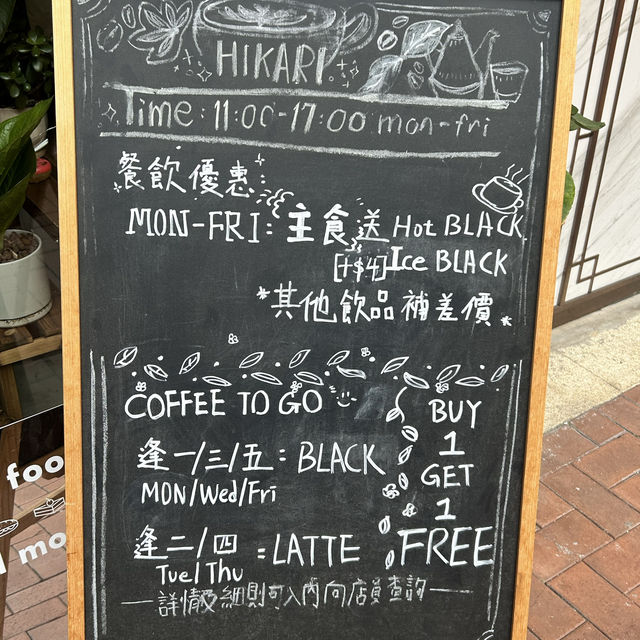 HIKARI
Time: 11:00-17:00 mon-fri
餐飲優惠:
MON-FRI: 主食送 Hot BLACK
[+$4] Ice BLACK
*其他飲品補差價*
COFFEE TO GO
逢一/三/五: BLACK
MON/Wed/Fri
逢二/四: LATTE
Tue/Thu
BUY
1
GET
1
FREE
—詳情及細則可入內向店員查詢—
foo
mo